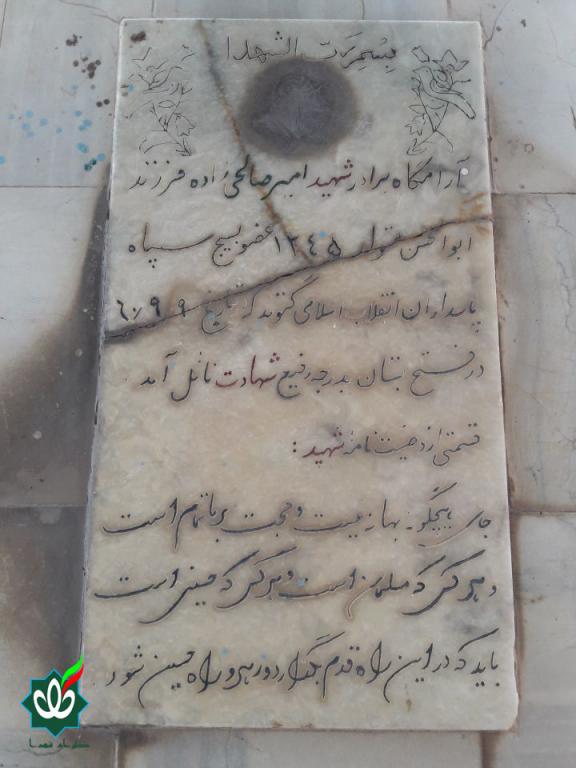 بسم رب الشهدا
آرامگاه برادر شهید امیر صالحی زاده فرزند
ابوالحسن متولد ۱۳۴۵ عضو بسیج سپاه
پاسداران انقلاب اسلامی گتوند که تاریخ ۹ ۹ ۶۰
در فتح بستان بدرجه رفیع شهادت نائل آمد
قسمتی از وصیت نامه شهید:
جای هیچگونه بهانه نیست و حجت بر ما تمام است
و هر کس که مسلمان است و هر کس که حسینی است
باید که در این راه قدم بگذارد و رهرو راه حسین شود